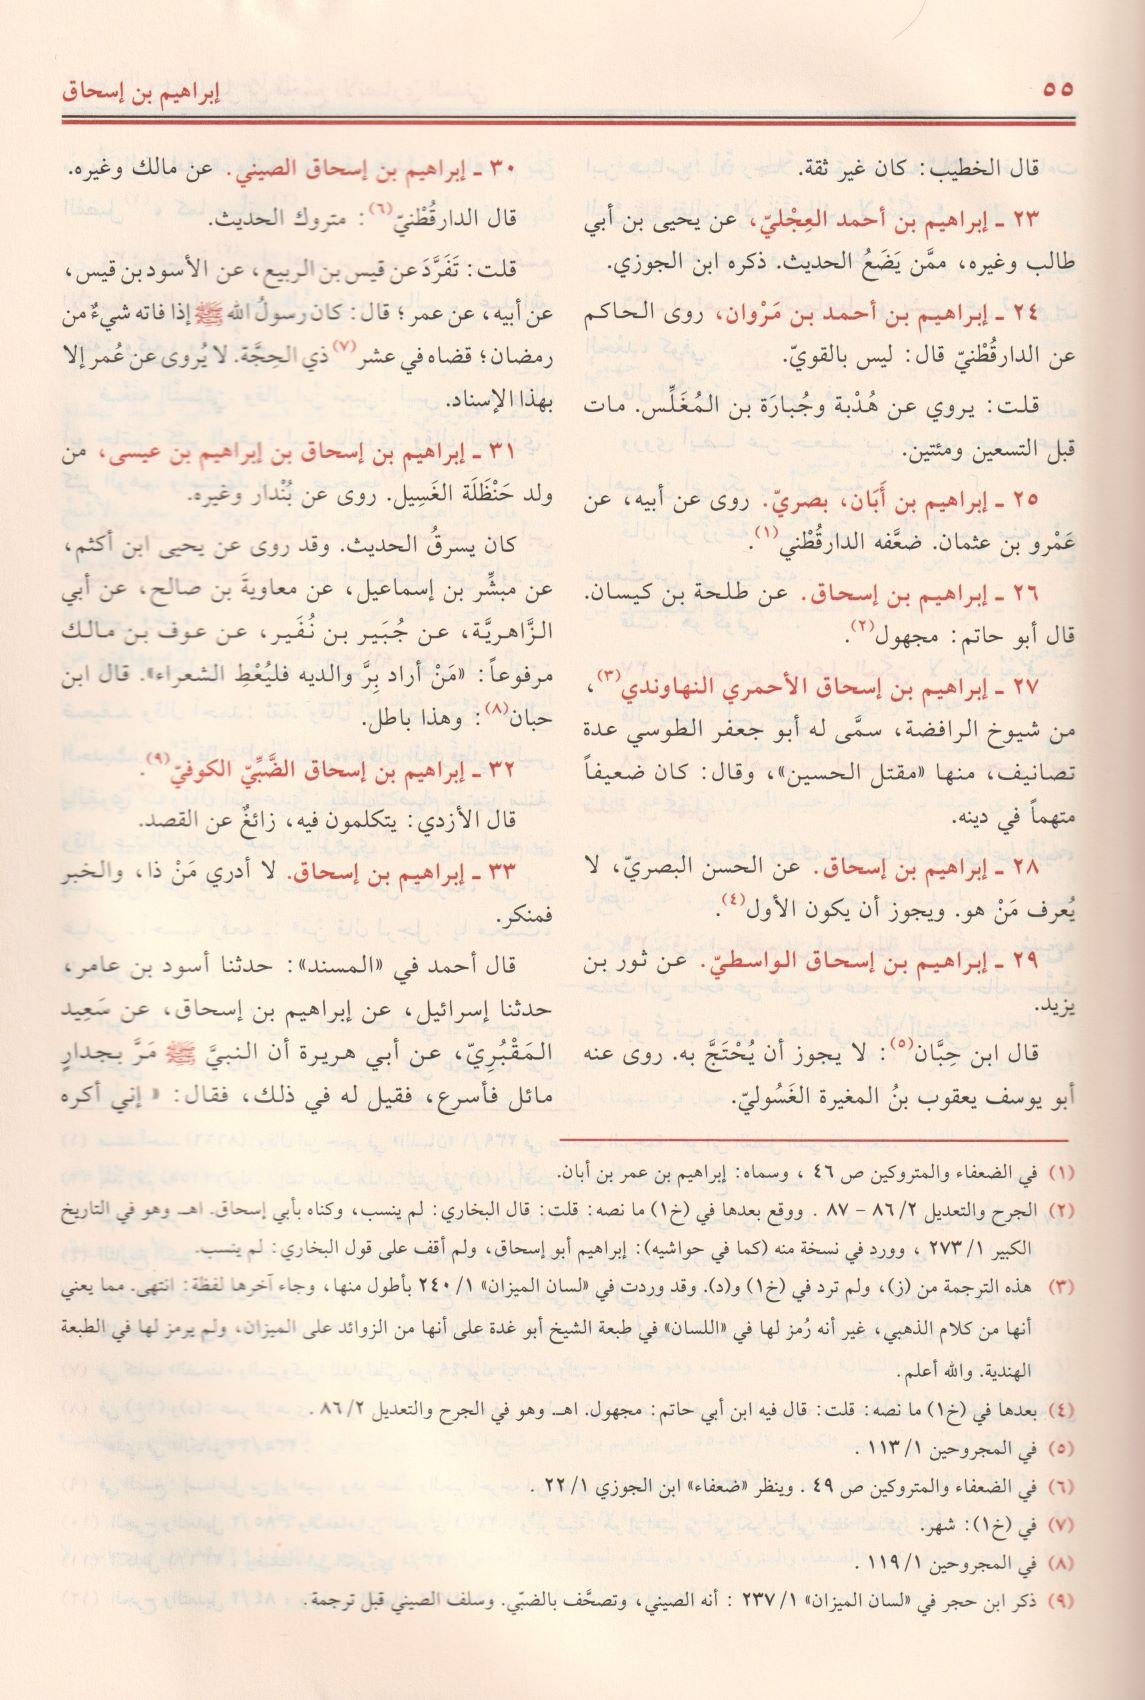 ٥٥
إبراهيم بن إسحاق
قال الخطيب: كان غير ثقة.
٢٣ ـ إبراهيم بن أحمد العِجْليّ، عن يحيى بن أبي
طالب وغيره، ممَّن يَضَعُ الحديث. ذكره ابن الجوزي.
٢٤ ـ إبراهيم بن أحمد بن مَرْوان، روى الحاكم
عن الدارقُطْنيّ قال: ليس بالقويّ.
قلت: يروي عن هُدْبة وجُبارَة بن المُغَلِّس. مات
قبل التسعين ومئتين.
٢٥ ـ إبراهيم بن أَبَان، بصريّ. روى عن أبيه، عن
عَمْرو بن عثمان. ضعَّفه الدارقُطْني(١).
٢٦ ـ إبراهيم بن إسحاق. عن طلحة بن كيسان.
قال أبو حاتم: مجهول(٢).
٢٧ ـ إبراهيم بن إسحاق الأحمري النهاوندي(٣)،
من شيوخ الرافضة، سمَّى له أبو جعفر الطوسي عدة
تصانيف، منها «مقتل الحسين»، وقال: كان ضعيفاً
متهماً في دينه.
٢٨ ـ إبراهيم بن إسحاق. عن الحسن البصريّ، لا
يُعرف مَنْ هو. ويجوز أن يكون الأول(٤).
٢٩ ـ إبراهيم بن إسحاق الواسطيّ. عن ثور بن
يزيد.
قال ابن حِبَّان(٥): لا يجوز أن يُحْتَجَّ به. روى عنه
أبو يوسف يعقوب بنُ المغيرة الغَسُوليّ.
٣٠ ـ إبراهيم بن إسحاق الصيني. عن مالك وغيره.
قال الدارقُطْنيّ(٦): متروك الحديث.
قلت: تَفَرَّدَ عن قيس بن الربيع، عن الأسود بن قيس،
عن أبيه، عن عمر؛ قال: كان رسولُ الله ﷺ إذا فاته شيءٌ من
رمضان؛ قضاه في عشر(٧) ذي الحِجَّة. لا يُروى عن عُمر إلا
بهذا الإسناد.
٣١ ـ إبراهيم بن إسحاق بن إبراهيم بن عيسى، من
ولد حَنْظَلَة الغَسِيل. روى عن بُنْدار وغيره.
كان يسرقُ الحديث. وقد روى عن يحيى ابن أكثم،
عن مبشِّر بن إسماعيل، عن معاويةَ بن صالح، عن أبي
الزَّاهريَّة، عن جُبَير بن نُفَير، عن عوف بن مالك
مرفوعاً: «مَنْ أراد بِرَّ والديه فليُعْطِ الشعراء». قال ابن
حبان(٨): وهذا باطل.
٣٢ ـ إبراهيم بن إسحاق الضَّبِّيّ الكوفيّ(٩).
قال الأزدي: يتكلمون فيه، زائغٌ عن القصد.
٣٣ ـ إبراهيم بن إسحاق. لا أدري مَنْ ذا، والخبر
فمنكر.
قال أحمد في «المسند»: حدثنا أسود بن عامر،
حدثنا إسرائيل، عن إبراهيم بن إسحاق، عن سَعِيد
المَقْبُريّ، عن أبي هريرة أن النبيَّ ﷺ مَرَّ بجدارٍ
مائل فأسرع، فقيل له في ذلك، فقال: « إني أكره
(١) في الضعفاء والمتروكين ص ٤٦ ، وسماه: إبراهيم بن عمر بن أبان.
(٢) الجرح والتعديل ٨٦/٢ – ٨٧ . ووقع بعدها في (خ١) ما نصه: قلت: قال البخاري: لم ينسب، وكناه بأبي إسحاق. اهـ. وهو في التاريخ
الكبير ٢٧٣/١ ، وورد في نسخة منه (كما في حواشيه): إبراهيم أبو إسحاق، ولم أقف على قول البخاري: لم ينسب.
(٣) هذه الترجمة من (ز)، ولم ترد في (خ١) و(د). وقد وردت في «لسان الميزان» ٢٤٠/١ بأطول منها، وجاء آخرها لفظة: انتهى. مما يعني
أنها من كلام الذهبي، غير أنه رُمز لها في «اللسان» في طبعة الشيخ أبو غدة على أنها من الزوائد على الميزان، ولم يرمز لها في الطبعة
الهندية. والله أعلم.
(٤) بعدها في (خ١) ما نصه: قلت: قال فيه ابن أبي حاتم: مجهول. اهـ. وهو في الجرح والتعديل ٨٦/٢ .
(٥) في المجروحين ١١٣/١ .
(٦) في الضعفاء والمتروكين ص ٤٩ . وينظر «ضعفاء» ابن الجوزي ٢٢/١ .
(٧) في (خ١): شهر.
(٨) في المجروحين ١١٩/١ .
(٩) ذكر ابن حجر في «لسان الميزان» ٢٣٧/١ : أنه الصيني، وتصحَّف بالضبّي. وسلف الصيني قبل ترجمة.